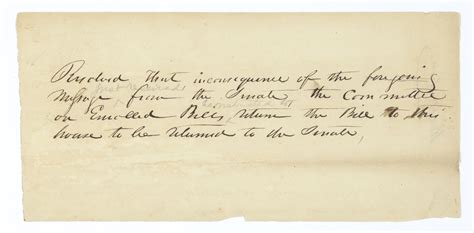 Resolved that inconsequence of the foregoing
Message from the Senate the Committee
on Enrolled Bills, return the Bill to this
house to be returned to the Senate,